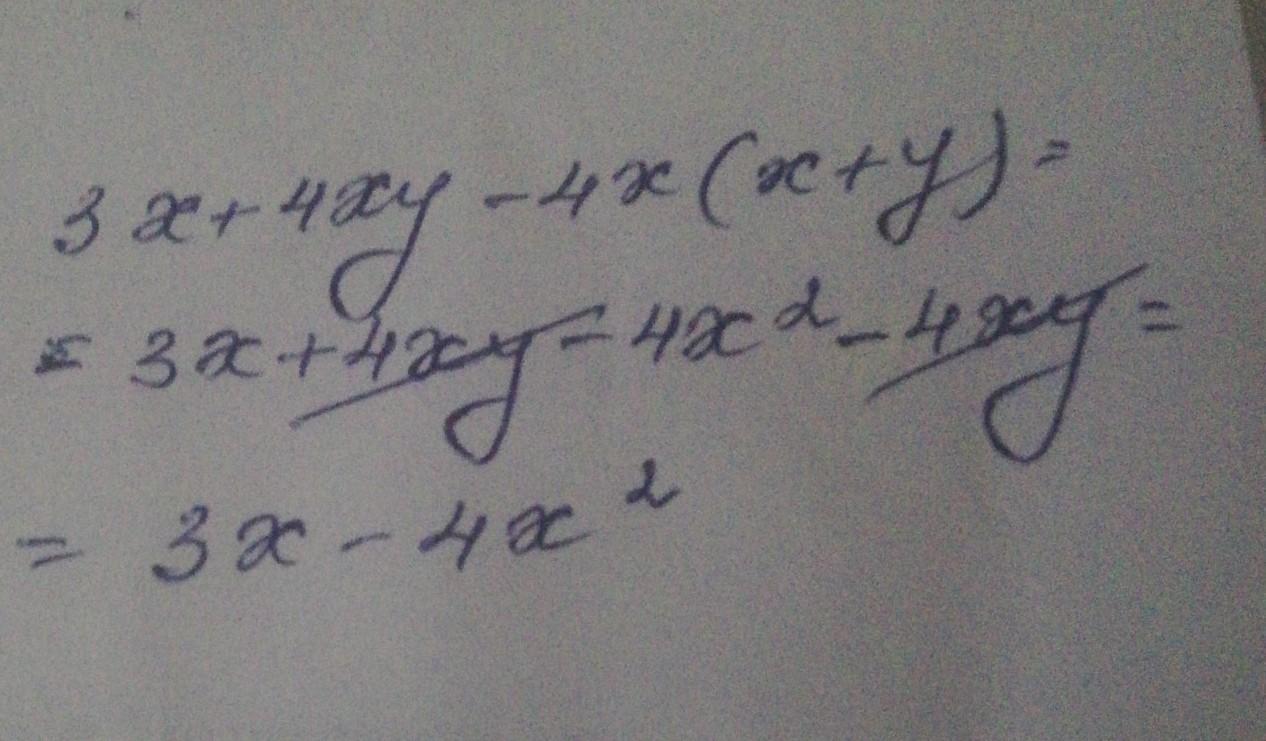 3x + 4xy - 4x(x+y) =
= 3x + 4xy - 4x² - 4xy =
= 3x - 4x²